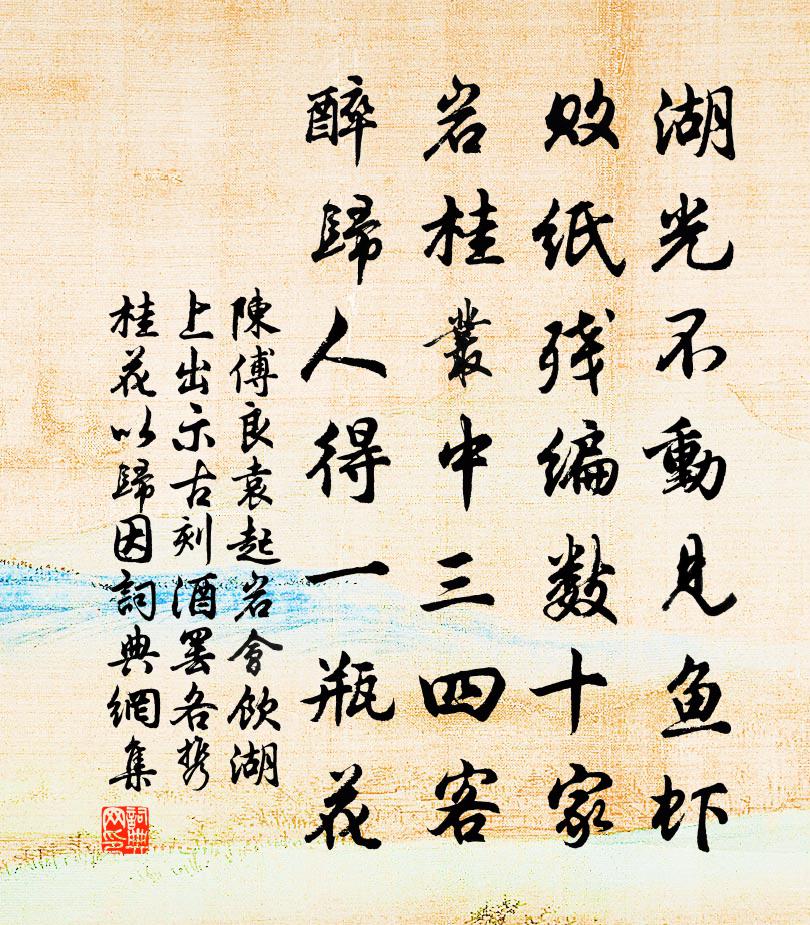 湖光不動見鱼虾
败纸残编数十家
岩桂叢中三四客
醉歸人得一瓶花
陳傅良袁起岩會飲湖
上出示古刻酒罢各携
桂花以歸因詞典網集
詞典
网印